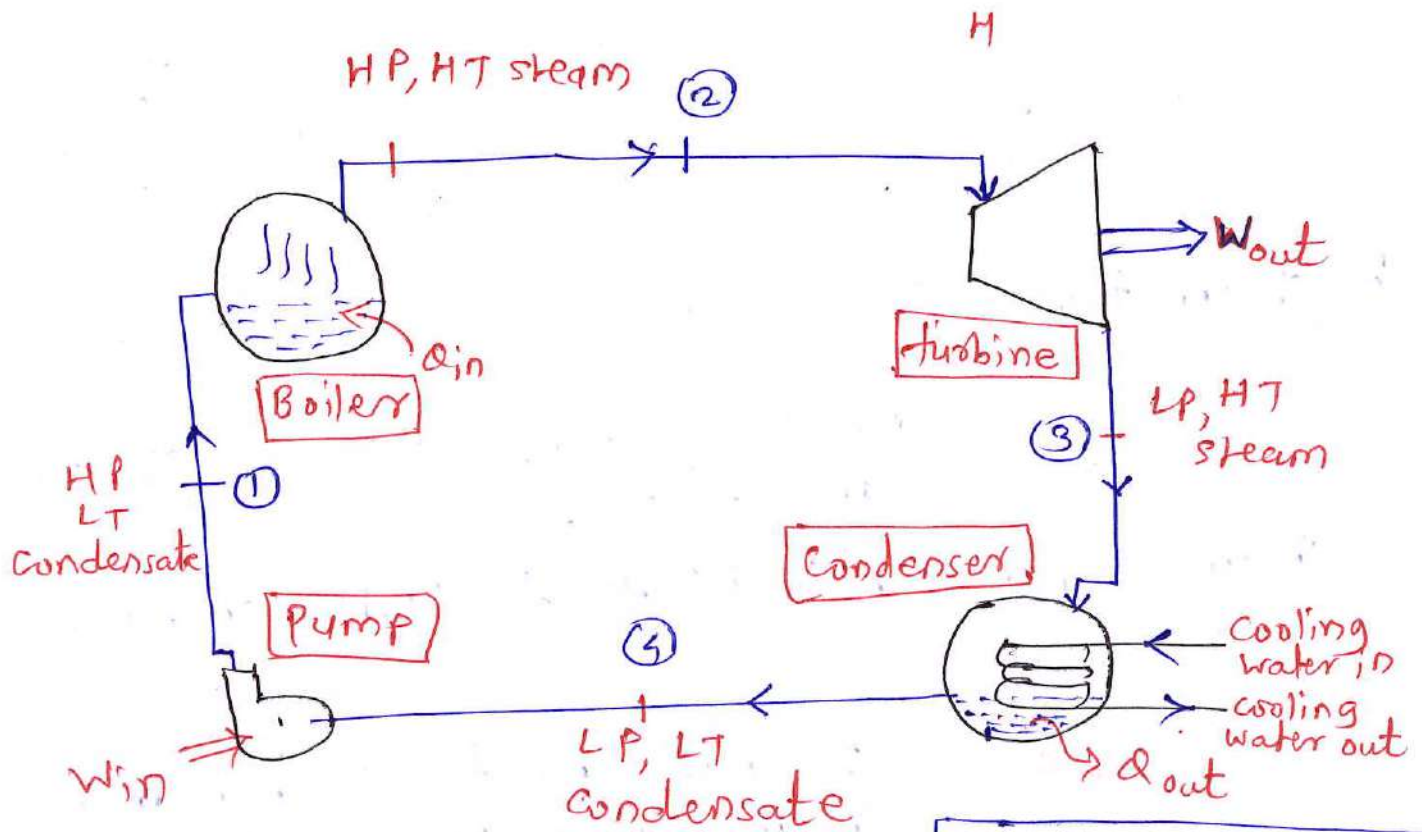 H
HP, HT steam
②
Wout
Qin
turbine
Boiler
LP, HT
steam
③
HP
LT
condensate
①
Condenser
Pump
④
cooling
water in
cooling
water out
LP, LT
condensate
Win
Qout